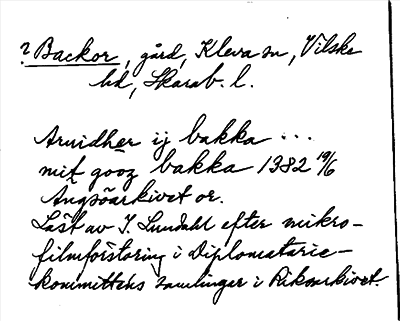 ? Backor, gård, Kleva sn, Vilske
hd, Skarab. l.
Arvidher ij bakka ...
mit gooz bakka 1382 19/6
Ängsöarkivet or.
Läst av I. Lundahl efter mikro-
filmförstoring i Diplomatarie-
kommitténs samlingar i Riksarkivet.